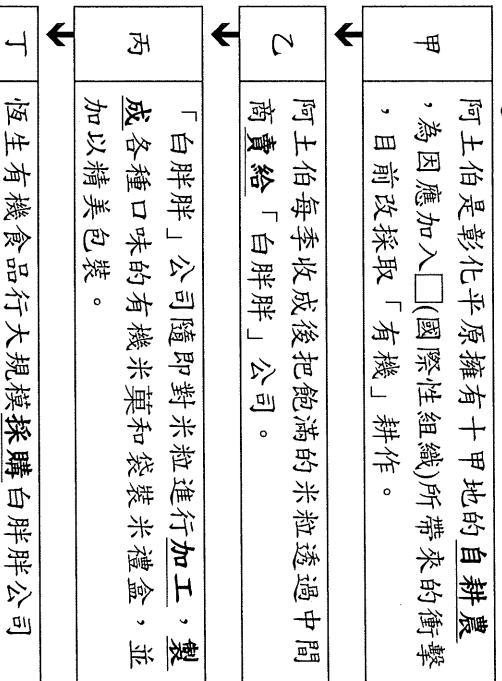 甲
阿土伯是彰化平原擁有十甲地的自耕農
，為因應加入□(國際性組織)所帶來的衝擊
，目前改採取「有機」耕作。
乙
阿土伯每季收成後把飽滿的米粒透過中間
商賣給「白胖胖」公司。
丙
「白胖胖」公司隨即對米粒進行加工，製
成各種口味的有機米菓和袋裝米禮盒，並
加以精美包裝。
丁
恆生有機食品行大規模採購白胖胖公司